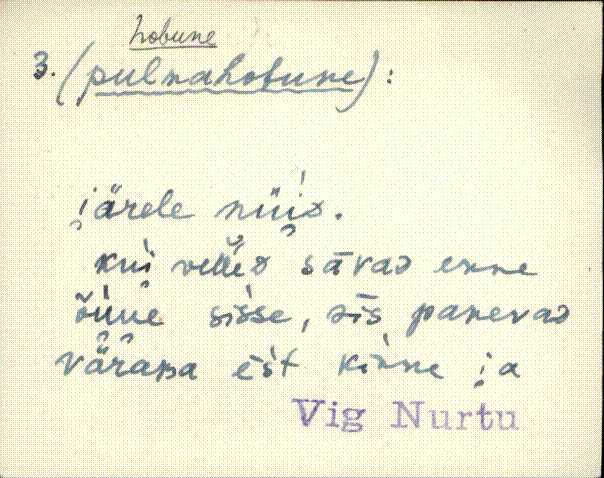 hobune
3. (pulmahobune):
järele nüìᴅ.
kui velleᴅ sāvaᴅ enne
õùue sìsse, sīs panevaᴅ
värava ēst kìnne ja
Vig Nurtu